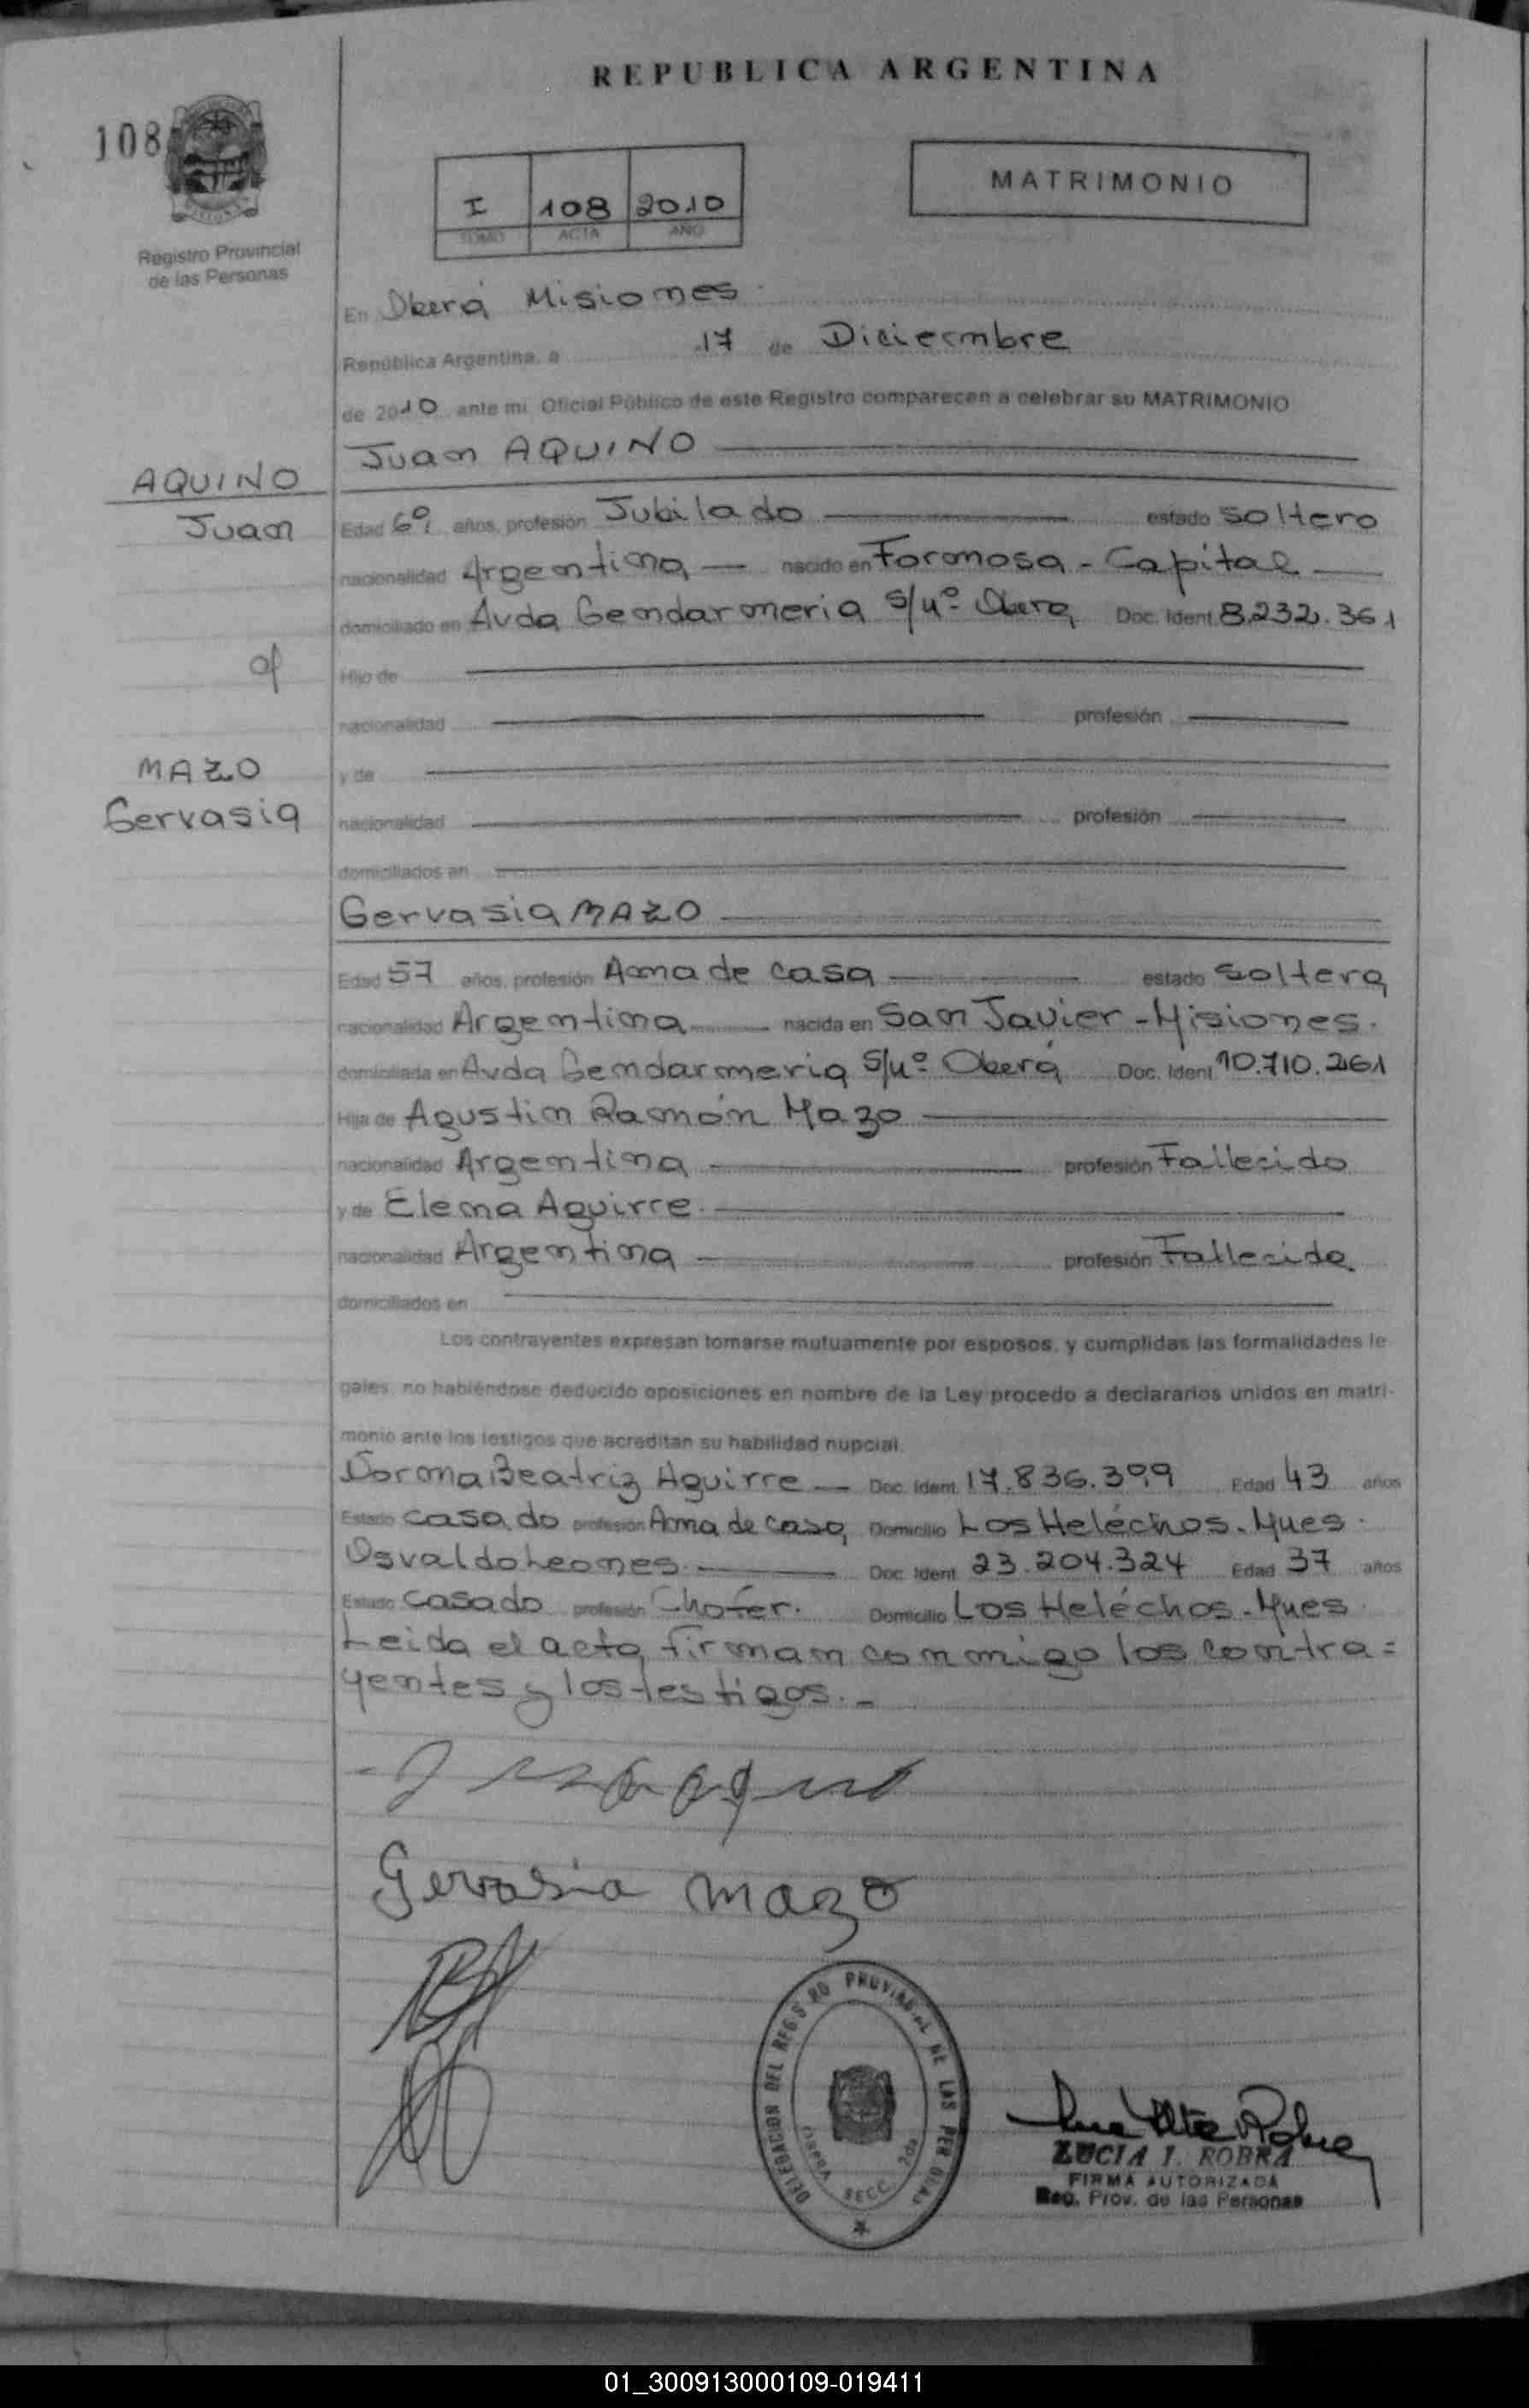 REPUBLICA ARGENTINA
108
MATRIMONIO
I 108 2010
TOMO ACTA AÑO
Registro Provincial
de las Personas
En Oberá Misiones
República Argentina, a 17 de Diciembre
de 2010 ante mi, Oficial Público de este Registro comparecen a celebrar su MATRIMONIO
Juan AQUINO
AQUINO
Juan
Edad 69 años, profesión Jubilado estado soltero
nacionalidad Argentina nacido en Formosa - Capital
domiciliado en Avda Gendarmeria S/nº Oberá Doc. Ident. 8.232.361
Hijo de
nacionalidad profesión
MAZO
Gervasia
y de
nacionalidad profesión
domiciliados en
Gervasia MAZO
Edad 57 años, profesión Ama de casa estado soltera
nacionalidad Argentina nacida en San Javier - Misiones.
domiciliada en Avda Gendarmeria S/nº Oberá Doc. Ident. 10.710.261
Hija de Agustin Ramón Mazo
nacionalidad Argentina profesión Fallecido
y de Elena Aguirre
nacionalidad Argentina profesión Fallecida
domiciliados en
Los contrayentes expresan tomarse mutuamente por esposos, y cumplidas las formalidades le
gales, no habiéndose deducido oposiciones en nombre de la Ley procedo a declararlos unidos en matri-
monio ante los testigos que acreditan su habilidad nupcial.
Norma Beatriz Aguirre Doc. Ident. 17.836.399 Edad 43 años
Estado casado profesión Ama de casa Domicilio Los Heléchos - Mnes.
Osvaldo Leones Doc. Ident. 23.204.324 Edad 37 años
Estado Casado profesión Chofer. Domicilio Los Heléchos - Mnes
Leida el acta, firman conmigo los contra=
yentes y los testigos.-
Gervasia mazo
DELEGACION DEL REGISTRO PROVINCIAL DE LAS PERSONAS
SECC. 2da
LUCIA I. ROBRA
FIRMA AUTORIZADA
Reg. Prov. de las Personas
01_300913000109-019411